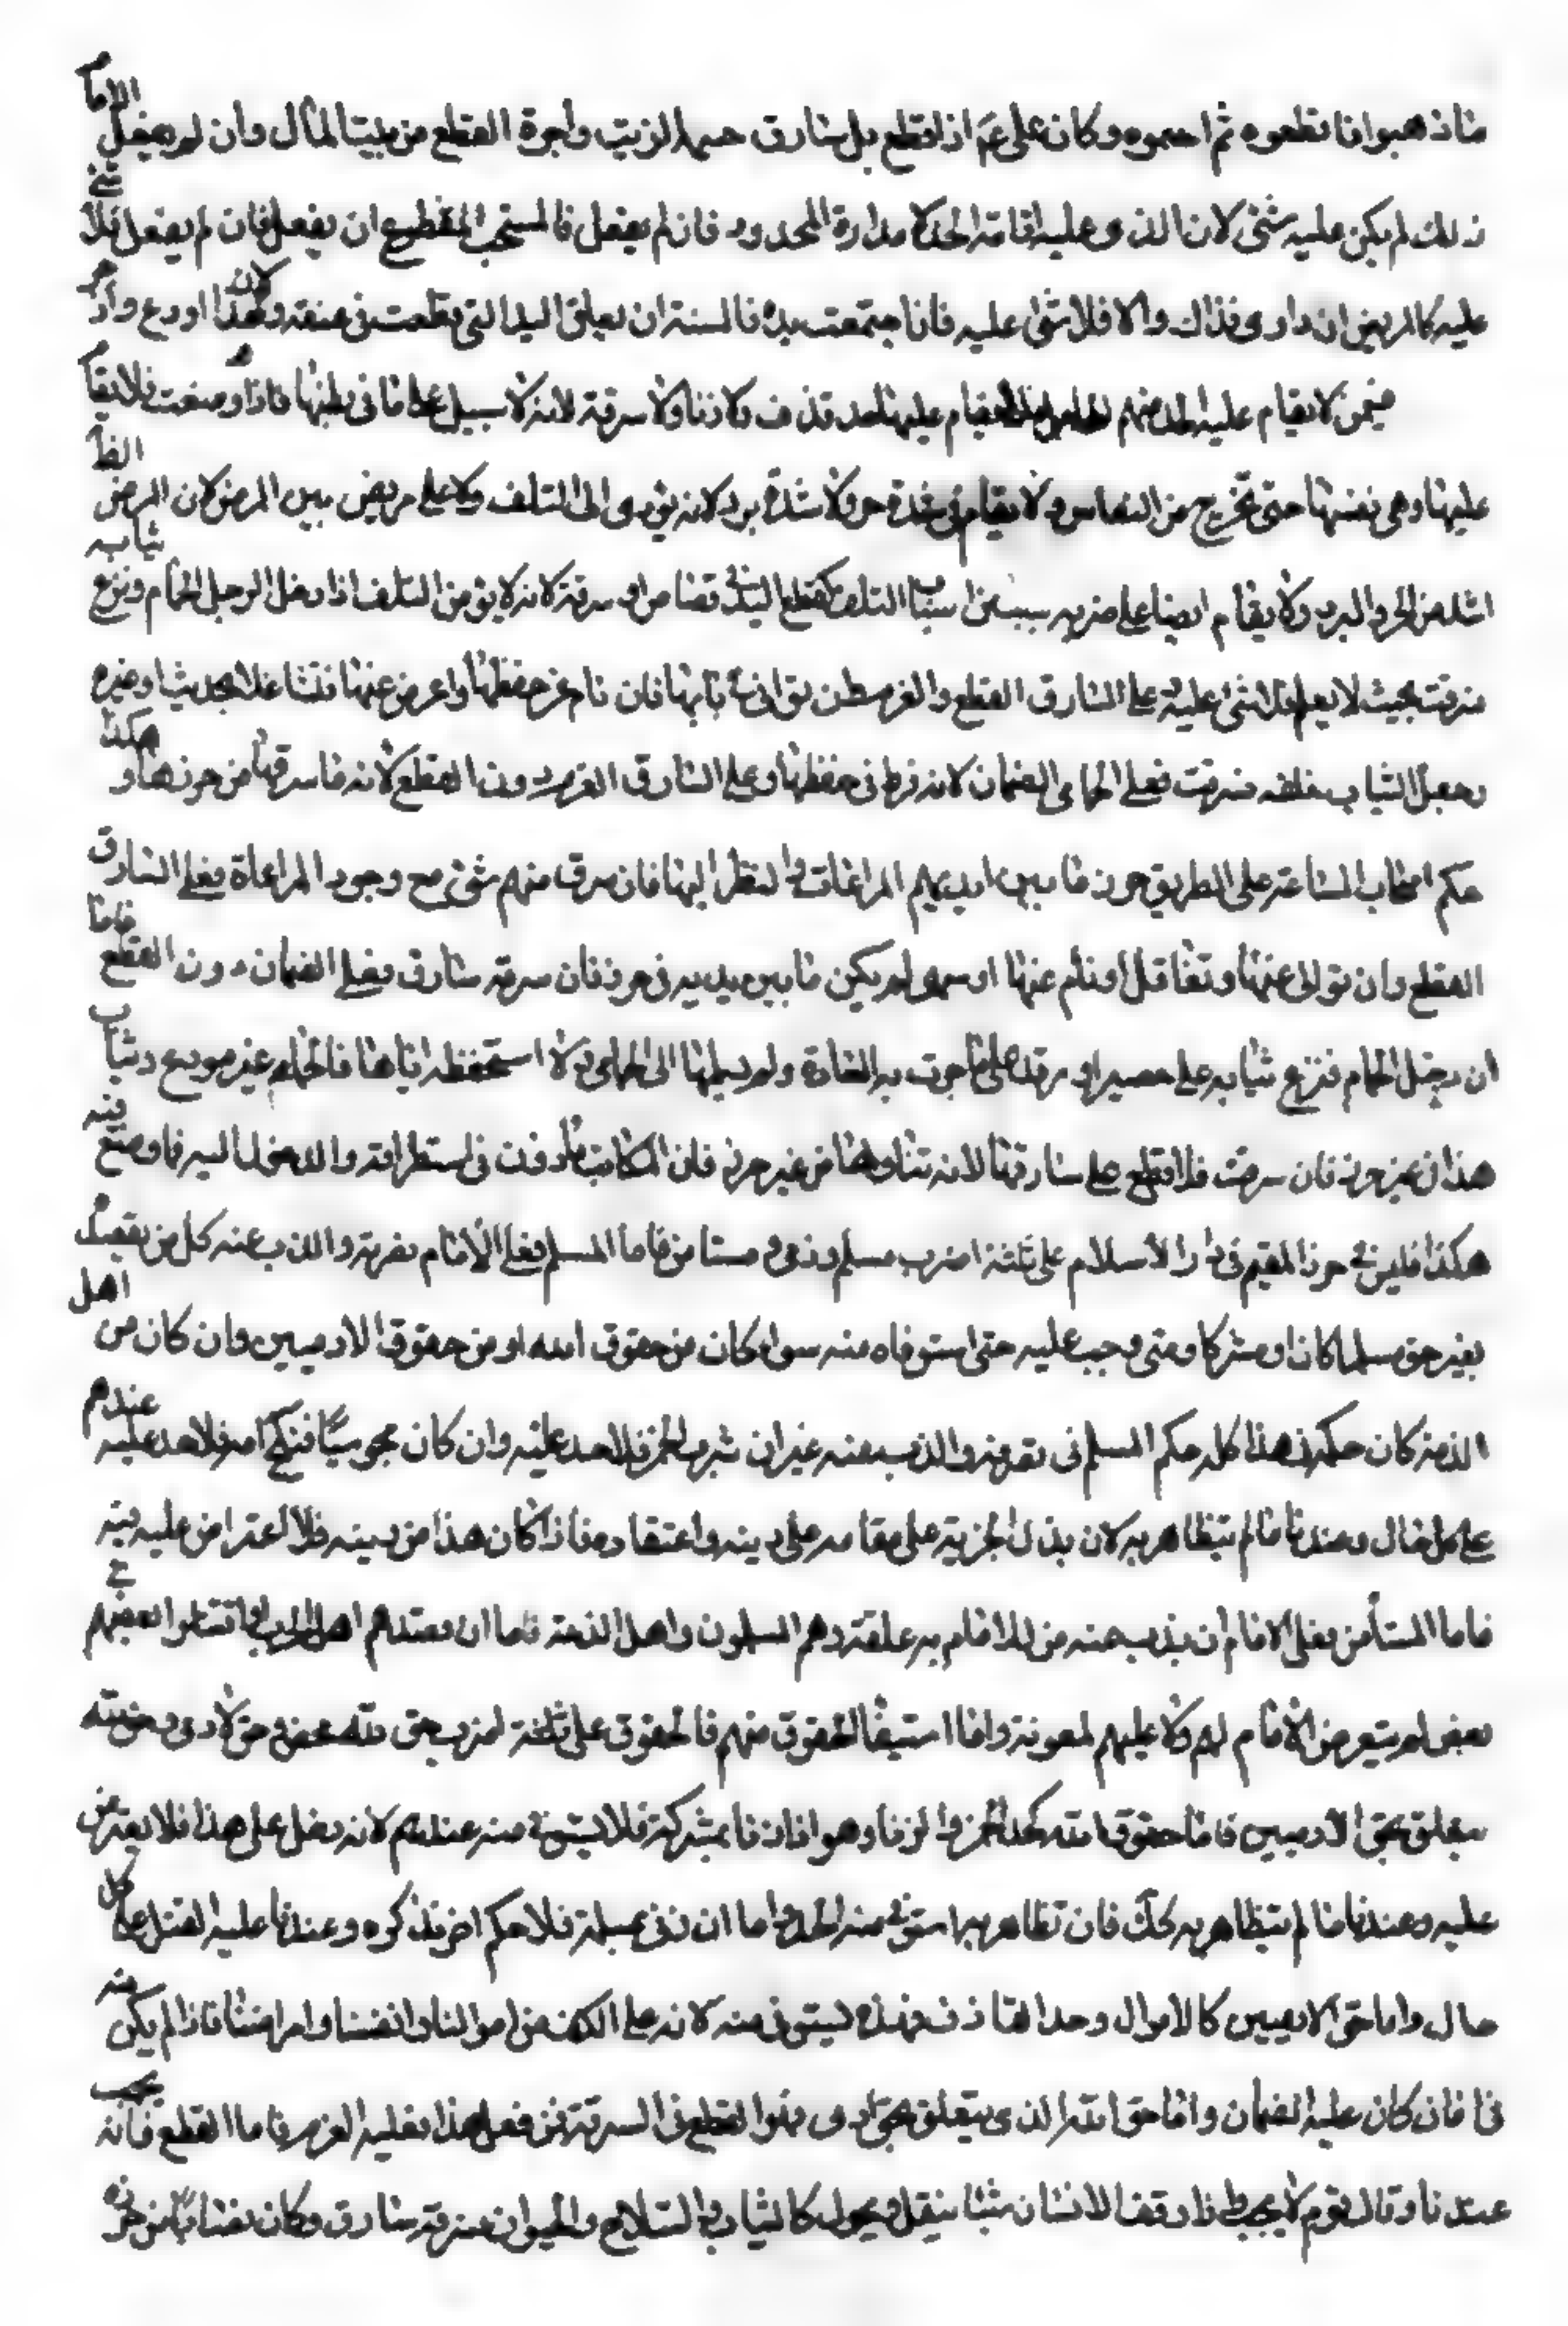 فاذهبوا فاقطعوه ثم احسموه وكان علي ع م اذا قطع يد سارق حسمها بالزيت واجرة القطع من بيت المال وان لم يفعل الامام
ذلك لم يكن عليه شئ لان الذي عليه اقامة الحد لا مداواة المحدود فان لم يفعل فالمستحب للمقطوع ان يفعل فان لم يفعل فلا شئ
عليه كالمريض ان داوى فذاك والا فلا شئ عليه فاذا جتمعت يده فالسنة ان يعلق اليد التي قطعت في عنقه لان هذا اردع وازجر
فيمن لا يقام عليه الحد منهم الحامل لا يقام عليها حد قذف ولا زنا ولا سرقة لانه لا سبيل على ما في بطنها فاذا وضعت فلا يقام
عليها وهي نفساء حتى تخرج من النفاس ولا يقام في شدة حر ولا شدة برد لانه يؤدي الى التلف ولا على مريض بين المرض لان المرض
اشد من الحر والبرد ولا يقام ايضا على من به سبب من اسباب التلف كقطع اليد في قصاص او سرقة لانه لا يؤمن التلف اذا دخل الرجل الحمام ونزع ثيابه
سرقت بحيث لا يعلم فلا شئ عليه على السارق القطع والغرم فان نام عن حفظها واعرض عنها فتشاغل بحديث او غيره
وجعل الثياب خلفه فسرقت فعلى الحمامي الضمان لانه فرط في حفظها وعلى السارق الغرم دون القطع لانه ما سرقها من حرز هذا وهكذا
حكم اصحاب المتاع على الطريق حرز ما بين ايديهم المراعات والنظر اليها فان سرق منهم شئ مع وجود المراعاة فعلى السارق
القطع وان تولى عنها وتغافل او نام عنها او سهى لم يكن ما بين يديه في حرز فان سرقه سارق فعليه الضمان دون القطع فاما
ان دخل الحمام فنزع ثيابه على حصير او وتد على ما جرت به العادة ولم يسلمها الى الحمامي ولا استحفظه اياها فالحمام غير مودع وثياب
هذا في غير حرز فان سرقت فلا قطع على سارقها لانه تناولها من غير حرز فان المكان مأذون في استطراقه والدخول اليه فما وضع فيه
هكذا فليس في حرز المقيم في دار الاسلام على ثلثة اضرب مسلم وذمي ومستأمن فاما المسلم فعلى الامام نصرته والذب عنه كل من يقصده
بغير حق مسلما كان او مشركا ومتى وجب عليه حق استوفاه منه سواء كان من حقوق الله او من حقوق الادميين وان كان من اهل
الذمة كان حكمه في هذا كله حكم المسلم في نصرته والذب عنه غير ان شرب الخمر فلا حد عليه وان كان مجوسيا فنكح امه فلا حد عليه عندهم
على كل حال وعندنا ما لم يتظاهر به لان بذل الجزية على مقامه على دينه واعتقاده فاذا كان هذا من دينه فلا اعتراض عليه فيه
فاما المستأمن فعلى الامام ان يذب عنه من للامام به علقة وهم المسلمون واهل الذمة فاما ان قصدهم اهل الحرب او اقتتلوا بعضهم في
بعض لم يتعرض الامام لهم ولا عليهم لمعونة واما استيفاء الحقوق منهم فالحقوق على ثلثة اضرب حق لله محض وحق لادمي وحق لله
يتعلق بحق الادميين فاما حقوق الله كحد الخمر والزنا وهو اذا زنا بمشركة فلا يستوفي منه عندهم لانه دخل على هذا فلا يعترض
عليه وعندنا ما لم يتظاهر به كذلك فان تظاهر به استوفى منه الحد واما ان زنى بمسلمة فلا حكم اخر نذكره وعندنا عليه القتل على كل
حال واما حق الادميين كالاموال وحد القذف فهذه يستوفى منه لانه على الكف عن اموالنا وانفسنا واعراضنا فاذا لم يكف عنه
فان كان عليه الضمان واما حق الله الذي يتعلق بحق ادمي فهو القطع في السرقة فمن فعل هذا فعليه الغرم فاما القطع فانه يجب
عندنا وقال قوم لا يجب اذا وقف الانسان شيئا ينقل ويحول كالثياب والسلاح والحيوان فسرقه سارق وكان نصابا من حرزه